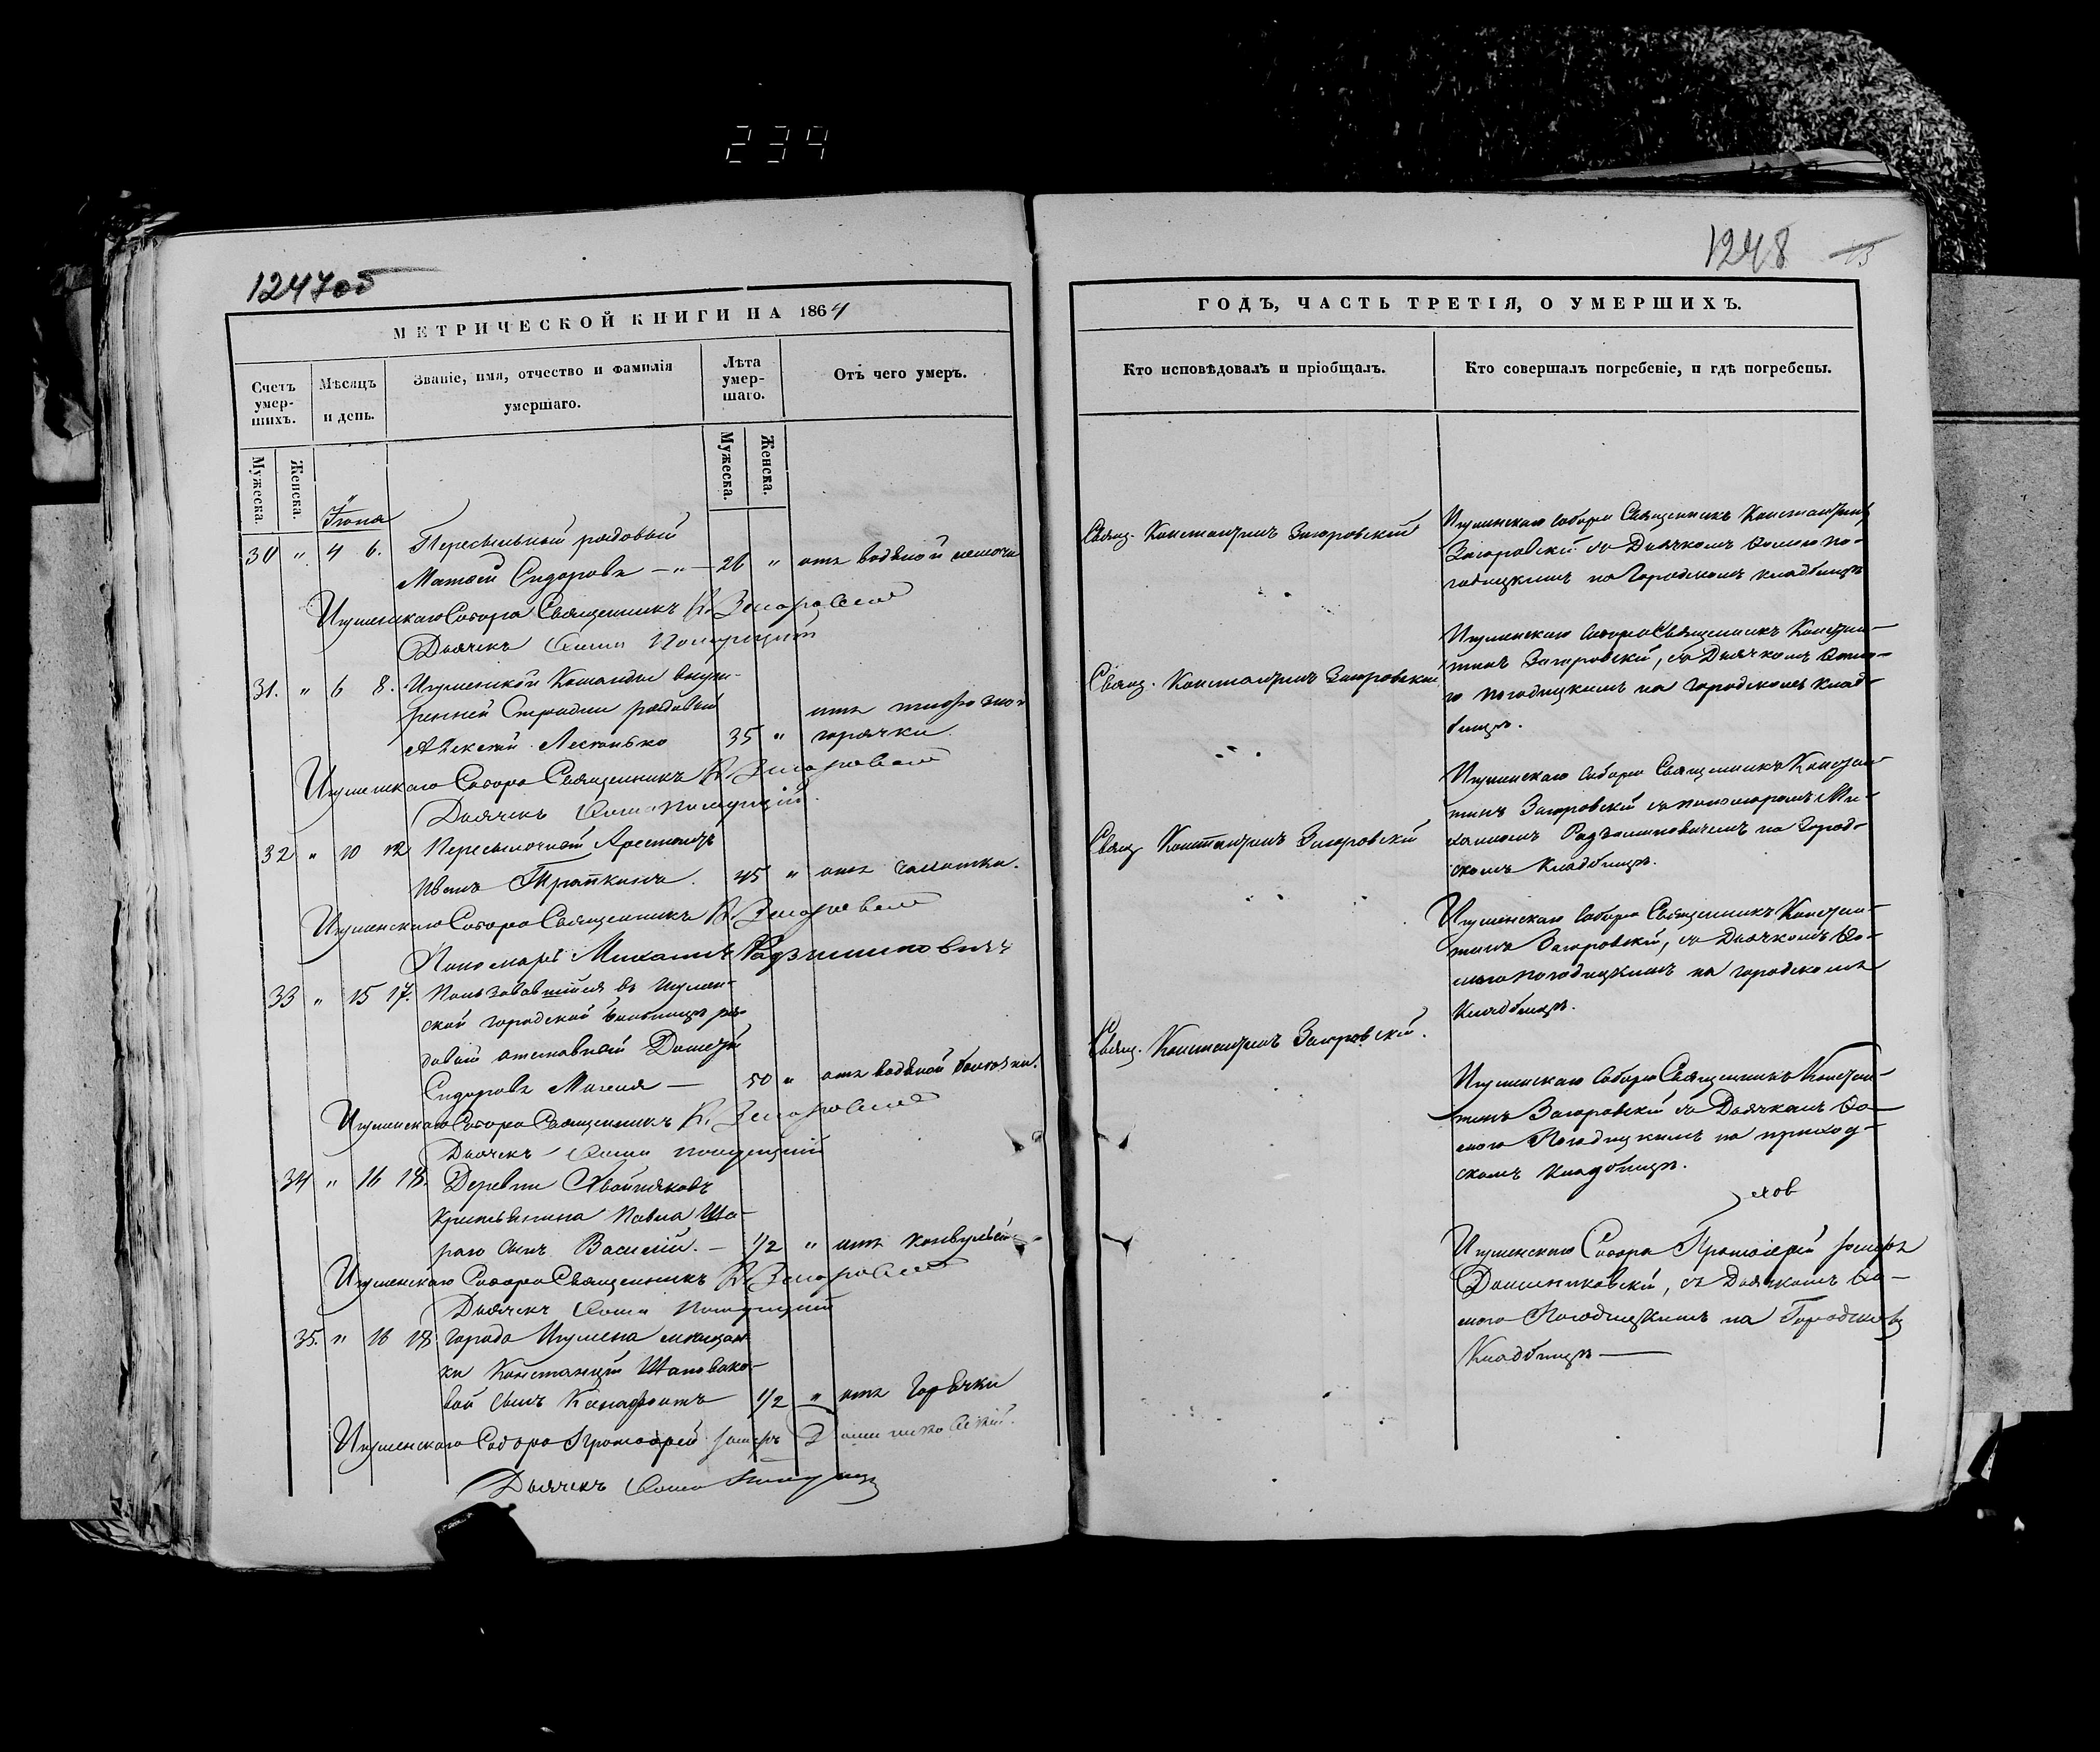 234
1247об
МЕТРИЧЕСКОЙ КНИГИ НА 1864
Счетъ умер-
шихъ.
Мѣсяцъ
и день.
Званіе, имя, отчество и фамилія
умершаго.
Лѣта
умер-
шаго.
Отъ чего умеръ.
Мужеска.
Женска.
Мужеска.
Женска.
Іюня
30 " 4 6. Пересыльный рядовый
Матвей Сидоровъ — " — 26 " отъ водяной немочи
Игуменскаго Собора Священникъ К. Загоровскій
Дьячекъ Фома
31. " 6 8. Игуменской Команды внут-
ренней Стражи рядовый
Алексѣй 35 " отъ
горячки.
Игуменскаго Собора Священникъ К. Загоровскій
Дьячекъ Фома
32 " 10 12 Пересылочный Арестантъ
Иванъ Тряпкинъ. 45 " отъ чахотки.
Игуменскаго Собора Священникъ К. Загоровскій
Пономарь Михаилъ Радзиминовичъ
33 " 15 17. Пользовавшійся въ Игумен-
ской городской больницѣ ря-
довой отставной
Сидоровъ — 50 " отъ водяной болезни.
Игуменскаго Собора Священникъ К. Загоровскій
Дьячекъ Фома
34 " 16 18. Деревни Хвойняковъ
крестьянина Павла Ша-
раго сынъ Василій. — 1/2 " отъ конвульсій
Игуменскаго Собора Священникъ К. Загоровскій
Дьячекъ Фома
35. " 16 18 города Игумена мещан-
ки Констанціи Шаповало-
вой сынъ 1/2 " отъ горячки
Игуменскаго Собора Протоіерей
Дьячекъ Фома
1248
13
ГОДЪ, ЧАСТЬ ТРЕТІЯ, О УМЕРШИХЪ.
Кто исповѣдовалъ и пріобщалъ.
Кто совершалъ погребеніе, и гдѣ погребены.
Свящ. Константинъ Загоровскій
Игуменскаго Собора Священникъ Константинъ
Загоровскій съ Дьячкомъ Фомою По-
годицкимъ на Городскомъ кладбищѣ
Свящ. Константинъ Загоровскій
Игуменскаго Собора Священникъ Констан-
тинъ Загоровскій, съ Дьячкомъ Фомо-
ю Погодицкимъ на городскомъ клад-
бищѣ.
Свящ. Константинъ Загоровскій
Игуменскаго Собора Священникъ Констан-
тинъ Загоровскій съ пономаремъ Ми-
хаиломъ Радзиминовичемъ на Город-
скомъ Кладбищѣ.
Свящ. Константинъ Загоровскій.
Игуменскаго Собора Священникъ Констан-
тинъ Загоровскій, съ Дьячкомъ Фо-
мою Погодицкимъ на городскомъ
Кладбищѣ.
Игуменскаго Собора Священникъ Констан-
тинъ Загоровскій съ Дьячкомъ Фо-
мою Погодицкимъ на приход-
скомъ кладбищѣ.
Игуменскаго Собора Протоіерей
съ Дьячкомъ Фо-
мою Погодицкимъ на Городскомъ
Кладбищѣ —